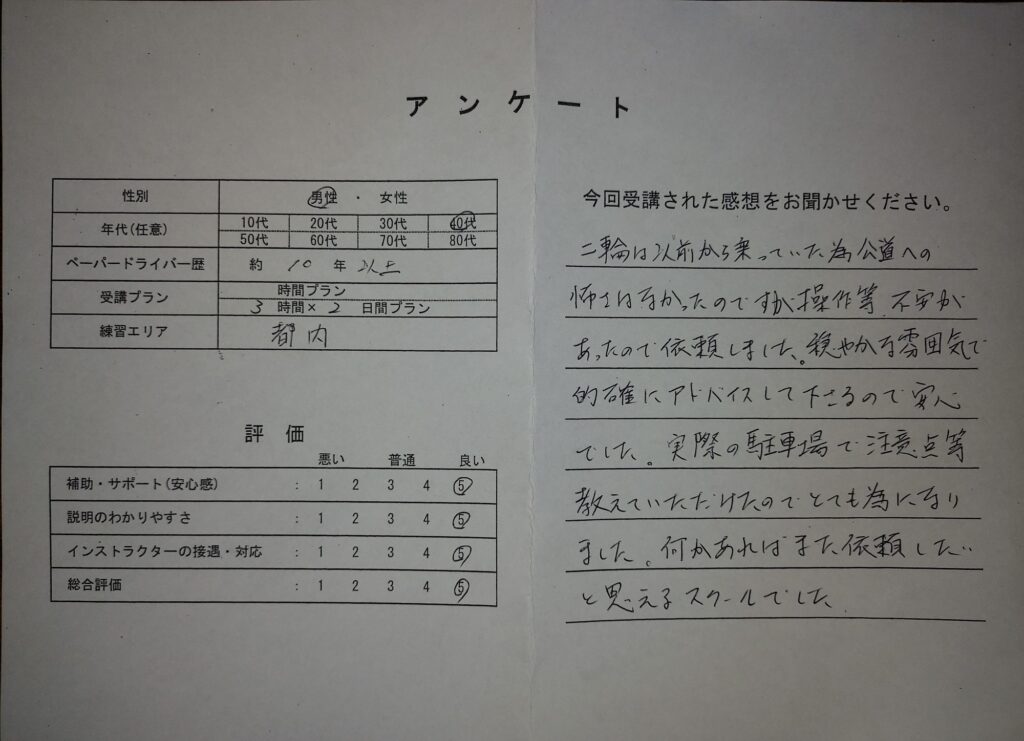 アンケート
性別 男性 ・ 女性
年代(任意) 10代 20代 30代 40代
50代 60代 70代 80代
ペーパードライバー歴 約 10 年 以上
受講プラン 時間プラン
3 時間× 2 日間プラン
練習エリア 都内
評 価
悪い 普通 良い
補助・サポート(安心感) : 1 2 3 4 5
説明のわかりやすさ : 1 2 3 4 5
インストラクターの接遇・対応 : 1 2 3 4 5
総合評価 : 1 2 3 4 5
今回受講された感想をお聞かせください。
二輪は以前から乗っていた為公道への
怖さはなかったのですが操作等、不安が
あったので依頼しました。穏やかな雰囲気で
的確にアドバイスして下さるので安心
でした。実際の駐車場で注意点等
教えていただけたのでとても為になり
ました。何かあればまた依頼したい
と思えるスクールでした。